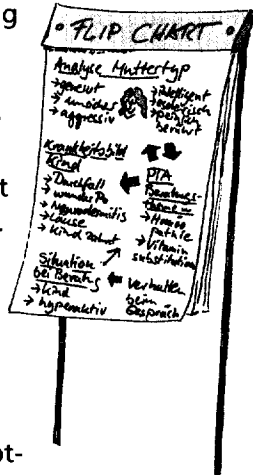 g
FLIP CHART
Analyse Muttertyp
→ genervt
→ unsicher
→ aggressiv
→ intelligent
→ esoterisch
→ peinlich
berührt
Krankheitsbild
Kind
→ Durchfall
→ wunder Po
→ Neurodermitis
→ Läuse
→ Kind zahnt
PTA
Beratungs-
→ Homöo
pathie
→ Vitamin
substitution
Situation
bei Beratung
→ Kind
→ hyperaktiv
Verhalten
beim
Gespräch
t
ot-